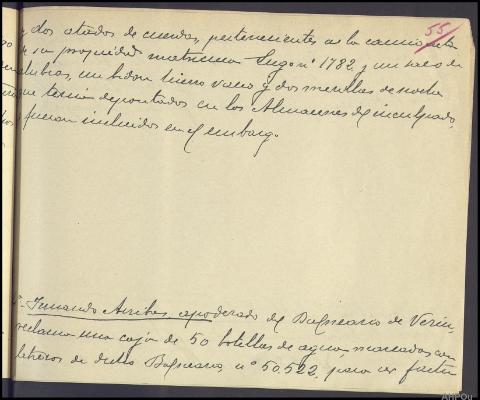 55
y dos atados de cuerdas, pertenecientes a la camioneta
de su propiedad matrícula Lugo nº 1782 y un saco de
alubias, un bidon hierro vacio y dos mesillas de noche
que tenia depositados en los Almacenes del inculpado,
y fueron incluidos en el embargo.
Fernando Arribas, apoderado del Balneario de Verin,
reclama una caja de 50 botellas de agua, marcadas con
letreros de dicho Balneario, nº 50.522, para ser factu
AHPOu